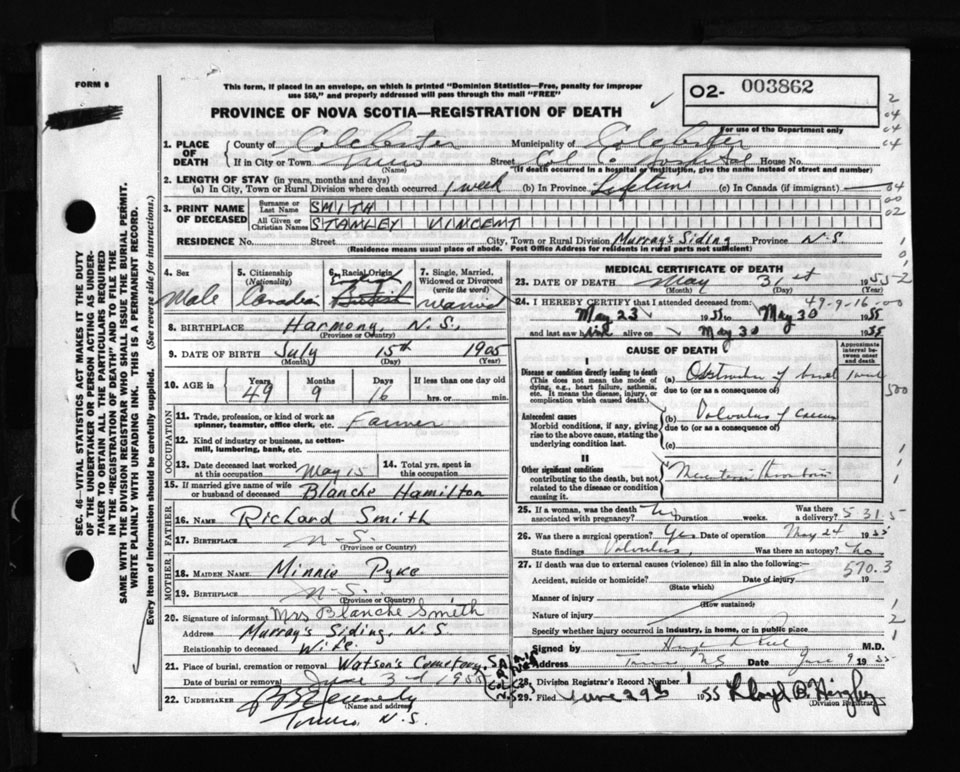 FORM 6
This form, if placed in an envelope, on which is printed "Dominion Statistics—Free, penalty for improper
use $50," and properly addressed will pass through the mail "FREE"
O2- 003862
PROVINCE OF NOVA SCOTIA—REGISTRATION OF DEATH
For use of the Department only
1. PLACE OF DEATH
County of Colchester Municipality of Colchester
If in City or Town Truro Street Col. Co. Hospital House No.
(Name) (If death occurred in a hospital or institution, give the name instead of street and number)
2. LENGTH OF STAY (in years, months and days)
(a) In City, Town or Rural Division where death occurred 1 week (b) In Province Lifetime (c) In Canada (if immigrant)
3. PRINT NAME OF DECEASED
Surname or Last Name SMITH
All Given or Christian Names STANLEY VINCENT
RESIDENCE No. Street City, Town or Rural Division Murray's Siding Province N.S.
(Residence means usual place of abode. Post Office Address for residents in rural parts not sufficient)
SEC. 46—VITAL STATISTICS ACT MAKES IT THE DUTY
OF THE UNDERTAKER OR PERSON ACTING AS UNDER-
TAKER TO OBTAIN ALL THE PARTICULARS REQUIRED
IN THE "REGISTRATION OF DEATH" AND TO FILE THE
SAME WITH THE DIVISION REGISTRAR WHO SHALL ISSUE THE BURIAL PERMIT.
WRITE PLAINLY WITH UNFADING INK. THIS IS A PERMANENT RECORD.
Every item of information should be carefully supplied. (See reverse side for instructions.)
4. Sex
Male
5. Citizenship
(Nationality)
Canadian
6. Racial Origin
English
British
7. Single, Married,
Widowed or Divorced
(write the word)
Married
8. BIRTHPLACE Harmony, N.S.
(Province or Country)
9. DATE OF BIRTH July 15th 1905
(Month) (Day) (Year)
10. AGE in Years Months Days If less than one day old
49 9 16 hrs. or min.
OCCUPATION
11. Trade, profession, or kind of work as
spinner, teamster, office clerk, etc. Farmer
12. Kind of industry or business, as cotton-
mill, lumbering, bank, etc.
13. Date deceased last worked
at this occupation May 15
14. Total yrs. spent in
this occupation
15. If married give name of wife
or husband of deceased Blanche Hamilton
FATHER
16. NAME Richard Smith
17. BIRTHPLACE N.S.
(Province or Country)
MOTHER
18. MAIDEN NAME Minnie Pyke
19. BIRTHPLACE N.S.
(Province or Country)
20. Signature of informant Mrs Blanche Smith
Address Murray's Siding, N.S.
Relationship to deceased Wife
21. Place of burial, cremation or removal Watson's Cemetery
Date of burial or removal June 3rd 1955
22. UNDERTAKER
(Name and address)
Truro, N.S.
MEDICAL CERTIFICATE OF DEATH
23. DATE OF DEATH May 31st 1955
(Month) (Day) (Year)
24. I HEREBY CERTIFY that I attended deceased from: 49-9-16-00
May 23 1955 to May 30 1955
and last saw him alive on May 30 1955
CAUSE OF DEATH
Approximate interval between onset and death
I
Disease or condition directly leading to death
(This does not mean the mode of dying, e.g., heart failure, asthenia, etc. It means the disease, injury, or complication which caused death.)
(a) Obstruction of bowel 1 week
due to (or as a consequence of)
Antecedent causes
Morbid conditions, if any, giving rise to the above cause, stating the underlying condition last.
(b) Volvulus of Caecum
due to (or as a consequence of)
(c)
II
Other significant conditions
contributing to the death, but not related to the disease or condition causing it.
Mesenteric thrombosis
25. If a woman, was the death associated with pregnancy? No Duration weeks. Was there a delivery?
531.5
26. Was there a surgical operation? Yes Date of operation May 24 1955
State findings Volvulus Was there an autopsy? No
27. If death was due to external causes (violence) fill in also the following:—
570.3
Accident, suicide or homicide? Date of injury 19
(State which)
Manner of injury
(How sustained)
Nature of injury
Specify whether injury occurred in industry, in home, or in public place
Signed by M.D.
Address Truro NS Date June 9 1955
28. Division Registrar's Record Number 1
29. Filed June 29th 1955 Lloyd B. Hingley
(Division Registrar)